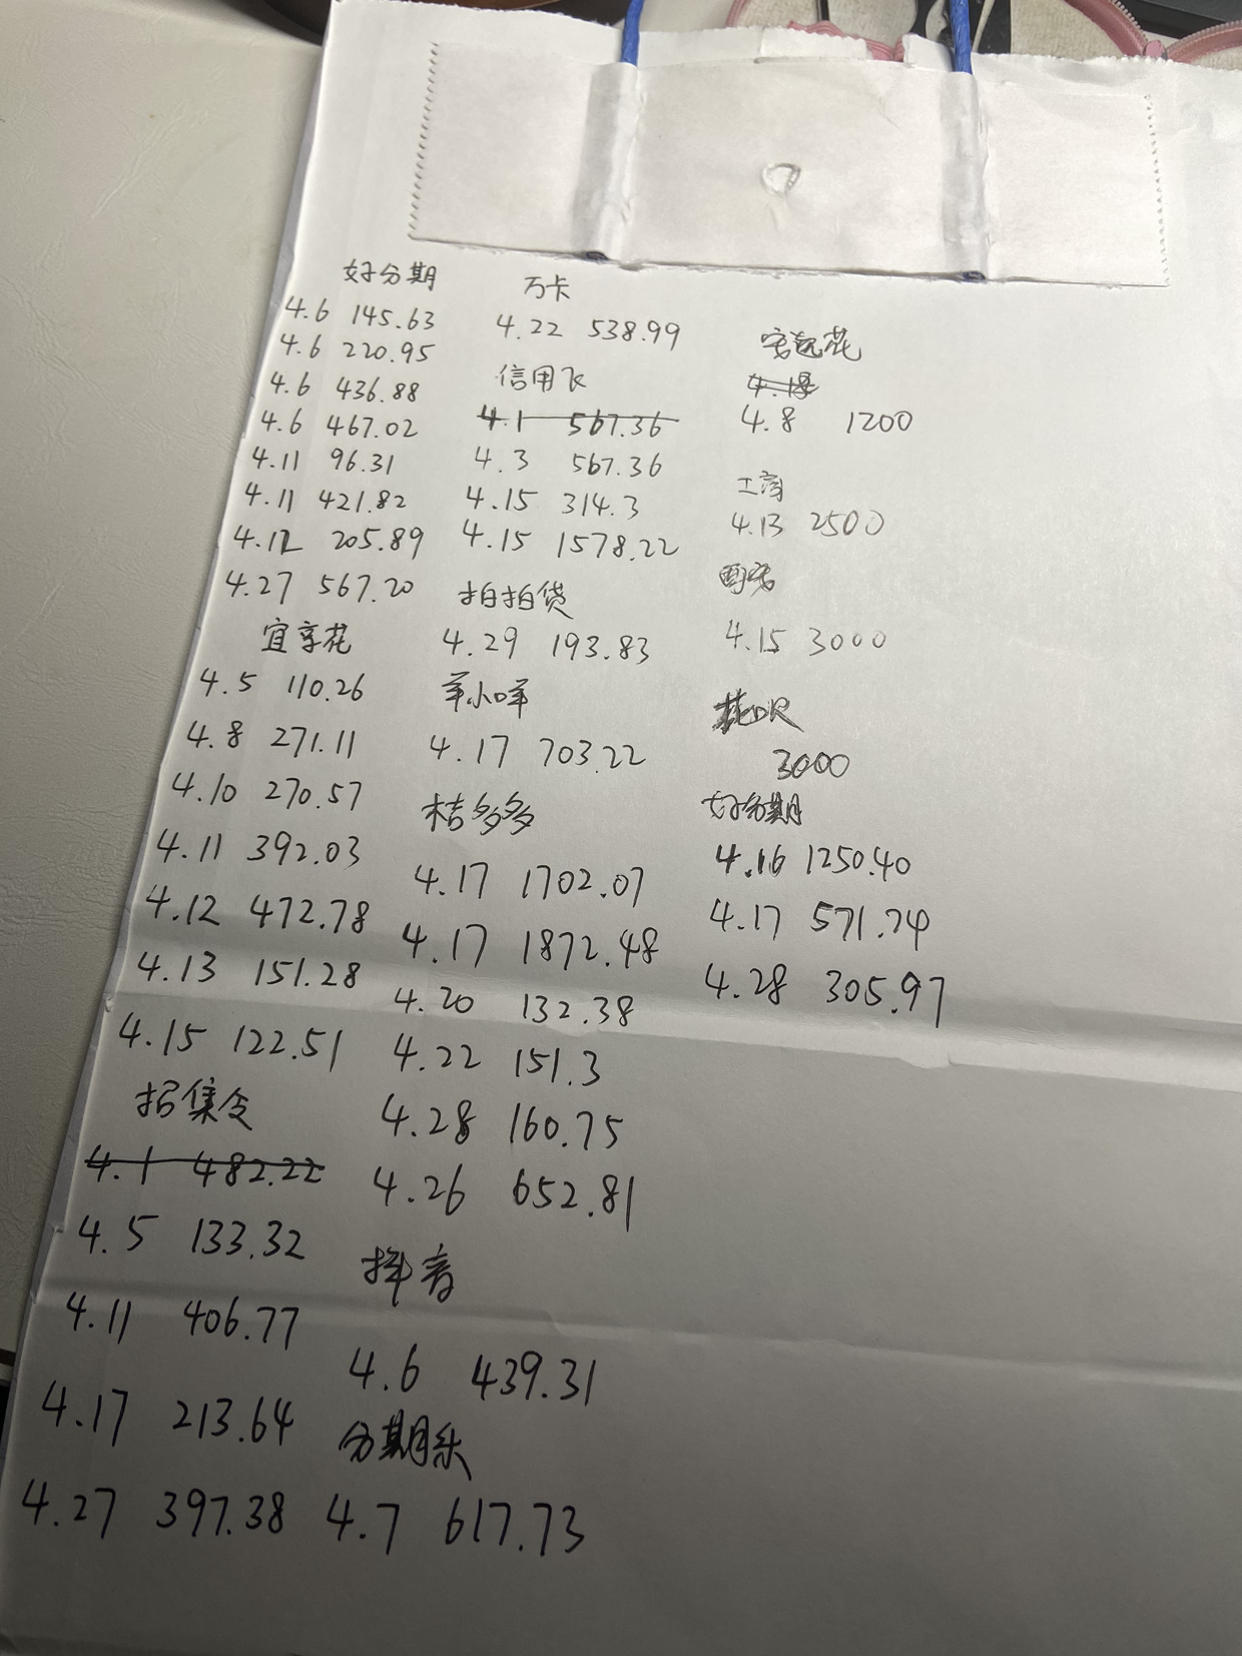 好分期
4.6 145.63
4.6 220.95
4.6 436.88
4.6 467.02
4.11 96.31
4.11 421.82
4.12 205.89
4.27 567.20
宜享花
4.5 110.26
4.8 271.11
4.10 270.57
4.11 392.03
4.12 472.78
4.13 151.28
4.15 122.51
招集令
4.1 482.22
4.5 133.32
4.11 406.77
4.17 213.64
4.27 397.38
万卡
4.22 538.99
信用飞
4.1 567.36
4.3 567.36
4.15 314.3
4.15 1578.22
拍拍贷
4.29 193.83
羊小咩
4.17 703.22
桔多多
4.17 1702.07
4.17 1872.48
4.20 132.38
4.22 151.3
4.28 160.75
4.26 652.81
抖音
4.6 439.31
分期乐
4.7 617.73
花
4.8 1200
工商
4.13 2500
4.15 3000
花呗
3000
好分期
4.16 1250.40
4.17 571.74
4.28 305.97